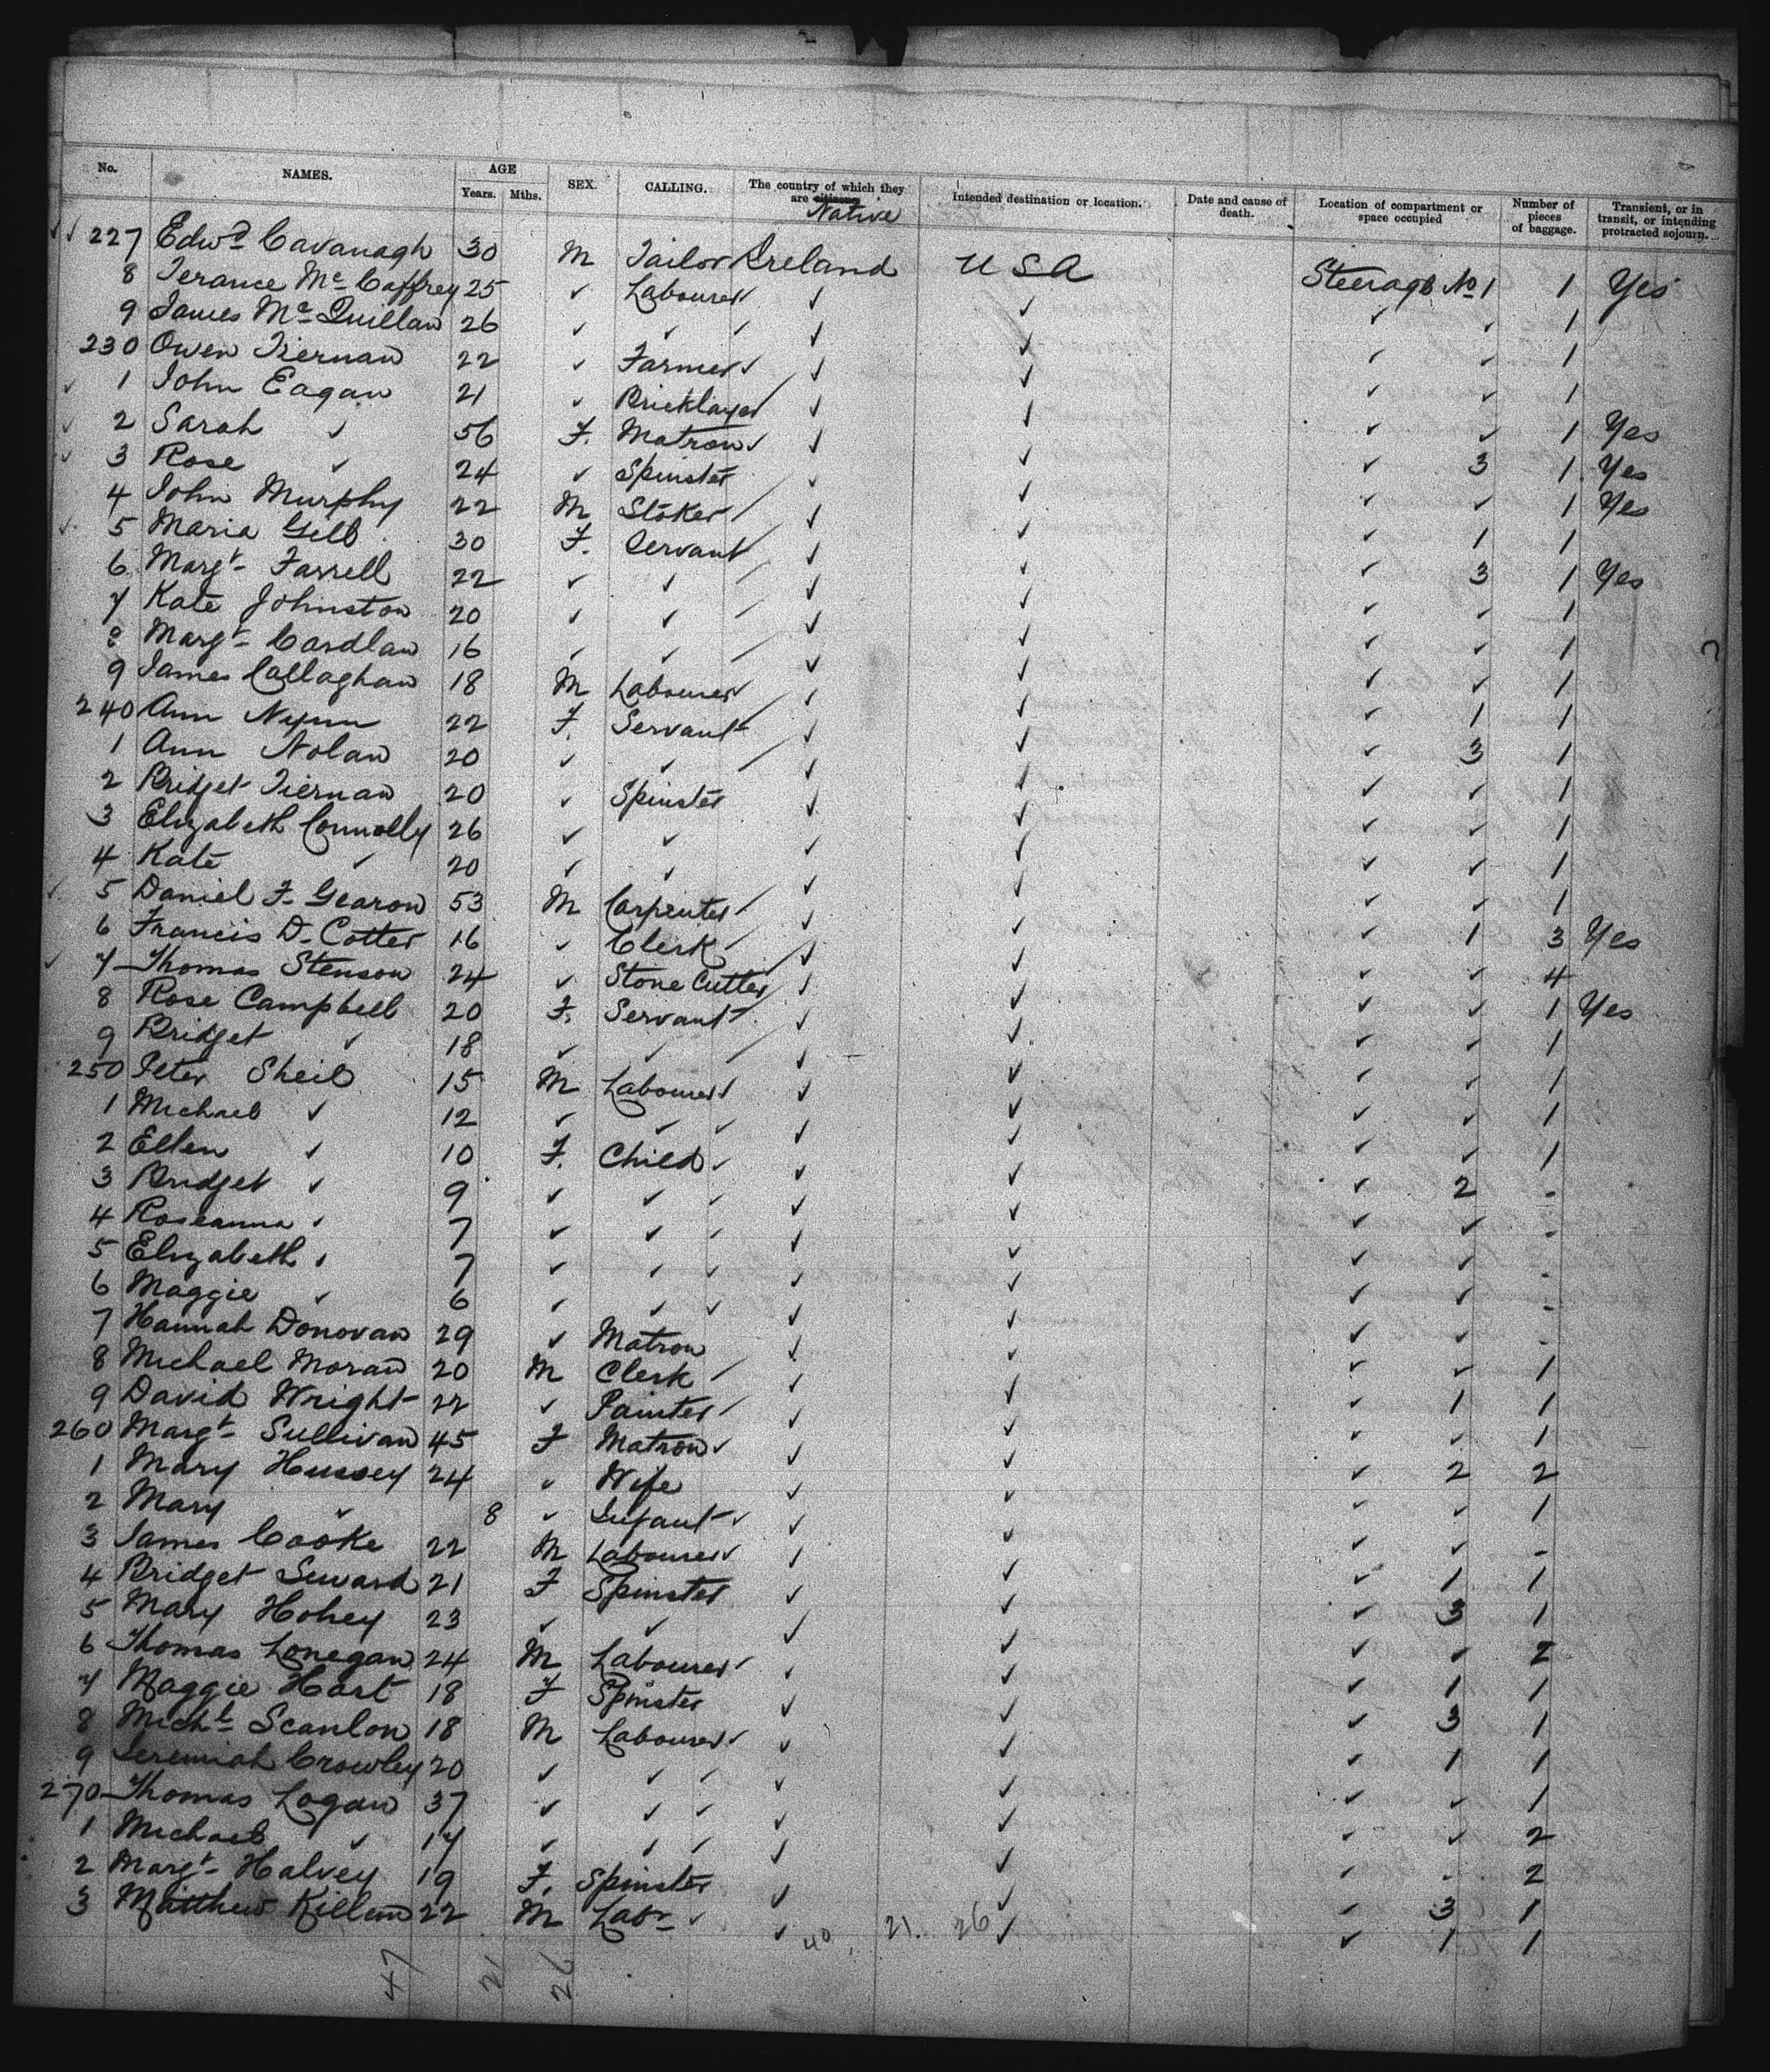 No. NAMES. AGE Years. Mths. SEX. CALLING. The country of which they are citizens Native Intended destination or location. Date and cause of death. Location of compartment or space occupied Number of pieces of baggage. Transient, or in transit, or intending protracted sojourn.
✓✓ 227 Edwd Cavanagh 30 M Tailor Ireland USA Steerage No 1 1 Yes
8 Terance Mc Caffrey 25 ✓ Labourer ✓ ✓ ✓ ✓ 1
9 James Mc Quillan 26 ✓ ✓ ✓ ✓ ✓ ✓ 1
230 Owen Tiernan 22 ✓ Farmer ✓ ✓ ✓ ✓ 1
✓ 1 John Eagan 21 ✓ Bricklayer ✓ ✓ ✓ ✓ 1 Yes
✓ 2 Sarah ✓ 56 F. Matron ✓ ✓ ✓ 3 1 Yes
✓ 3 Rose ✓ 24 ✓ Spinster ✓ ✓ ✓ ✓ 1 Yes
4 John Murphy 22 M Stoker ✓ ✓ ✓ 1 1
✓ 5 Maria Gell 30 F. Servant ✓ ✓ ✓ 3 1 Yes
6 Margt Farrell 22 ✓ ✓ ✓ ✓ ✓ ✓ 1
7 Kate Johnston 20 ✓ ✓ ✓ ✓ ✓ ✓ 1
8 Margt Cardlan 16 ✓ ✓ ✓ ✓ ✓ ✓ 1
9 James Callaghan 18 M Labourer ✓ ✓ ✓ 1 1
240 Ann Nynn 22 F. Servant ✓ ✓ ✓ 3 1
1 Ann Nolan 20 ✓ ✓ ✓ ✓ ✓ ✓ 1
2 Bridget Tiernan 20 ✓ Spinster ✓ ✓ ✓ ✓ 1
3 Elizabeth Connolly 26 ✓ ✓ ✓ ✓ ✓ ✓ 1
4 Kate ✓ 20 ✓ ✓ ✓ ✓ ✓ ✓ 1
✓ 5 Daniel F. Gearon 53 M Carpenter ✓ ✓ ✓ 1 3 Yes
6 Francis D. Cotter 16 ✓ Clerk ✓ ✓ ✓ ✓ 4
✓ 7 Thomas Stenson 24 ✓ Stone Cutter ✓ ✓ ✓ ✓ 1 Yes
8 Rose Campbell 20 F. Servant ✓ ✓ ✓ ✓ 1
9 Bridget ✓ 18 ✓ ✓ ✓ ✓ ✓ ✓ 1
250 Peter Sheil 15 M Labourer ✓ ✓ ✓ ✓ 1
1 Michael ✓ 12 ✓ ✓ ✓ ✓ ✓ ✓ 1
2 Ellen ✓ 10 F. Child ✓ ✓ ✓ 2 -
3 Bridget ✓ 9 ✓ ✓ ✓ ✓ ✓ ✓ -
4 Roseanna ✓ 7 ✓ ✓ ✓ ✓ ✓ ✓ -
5 Elizabeth ✓ 7 ✓ ✓ ✓ ✓ ✓ ✓ -
6 Maggie ✓ 6 ✓ ✓ ✓ ✓ ✓ ✓ -
7 Hannah Donovan 29 ✓ Matron ✓ ✓ ✓ ✓ 1
8 Michael Moran 20 M Clerk ✓ ✓ ✓ 1 1
9 David Wright 22 ✓ Painter ✓ ✓ ✓ ✓ 1
260 Margt Sullivan 45 F Matron ✓ ✓ ✓ 2 2
1 Mary Hussey 24 ✓ Wife ✓ ✓ ✓ ✓ 1
2 Mary ✓ 8 ✓ Infant ✓ ✓ ✓ ✓ -
3 James Cooke 22 M Labourer ✓ ✓ ✓ 1 1
4 Bridget Seward 21 F Spinster ✓ ✓ ✓ 3 1
5 Mary Hohey 23 ✓ ✓ ✓ ✓ ✓ ✓ 2
6 Thomas Lonegan 24 M Labourer ✓ ✓ ✓ 1 1
7 Maggie Hart 18 F Spinster ✓ ✓ ✓ 3 1
8 Michl Scanlon 18 M Labourer ✓ ✓ ✓ 1 1
9 Jeremiah Crowley 20 ✓ ✓ ✓ ✓ ✓ ✓ 1
270 Thomas Logan 37 ✓ ✓ ✓ ✓ ✓ ✓ 2
1 Michael ✓ 17 ✓ ✓ ✓ ✓ ✓ ✓ 2
2 Margt Halvey 19 F. Spinster ✓ ✓ ✓ 3 1
3 Matthew Killen 22 M Labr ✓ ✓ ✓ 1 1
40 21. 26
47 21 26